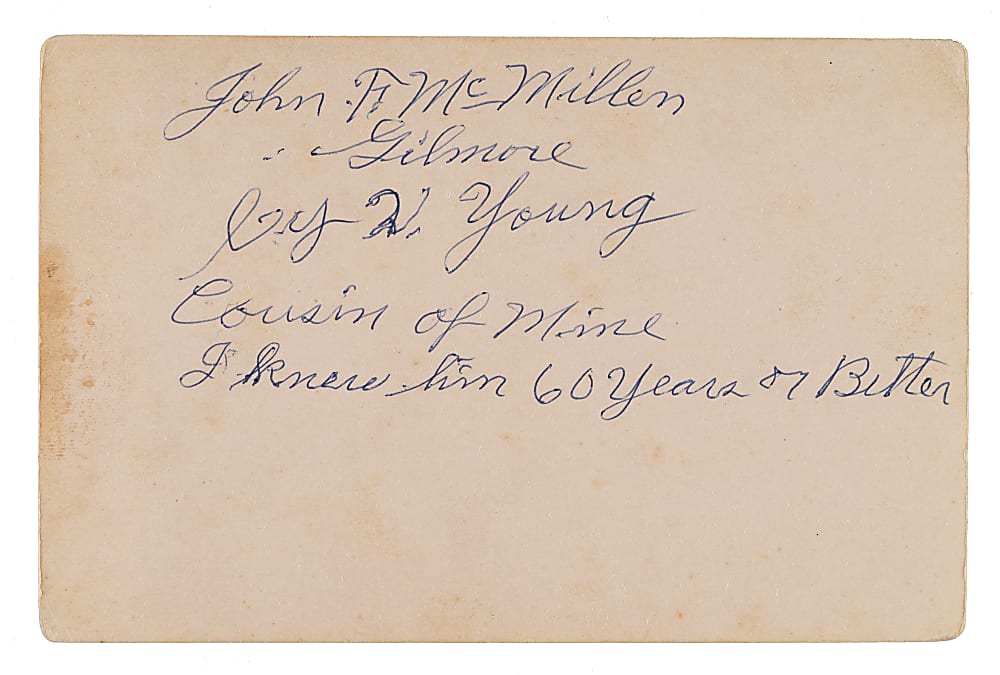 John F. McMillen
Gilmore
Cy Young
Cousin of Mine
I knew him 60 Years or Better